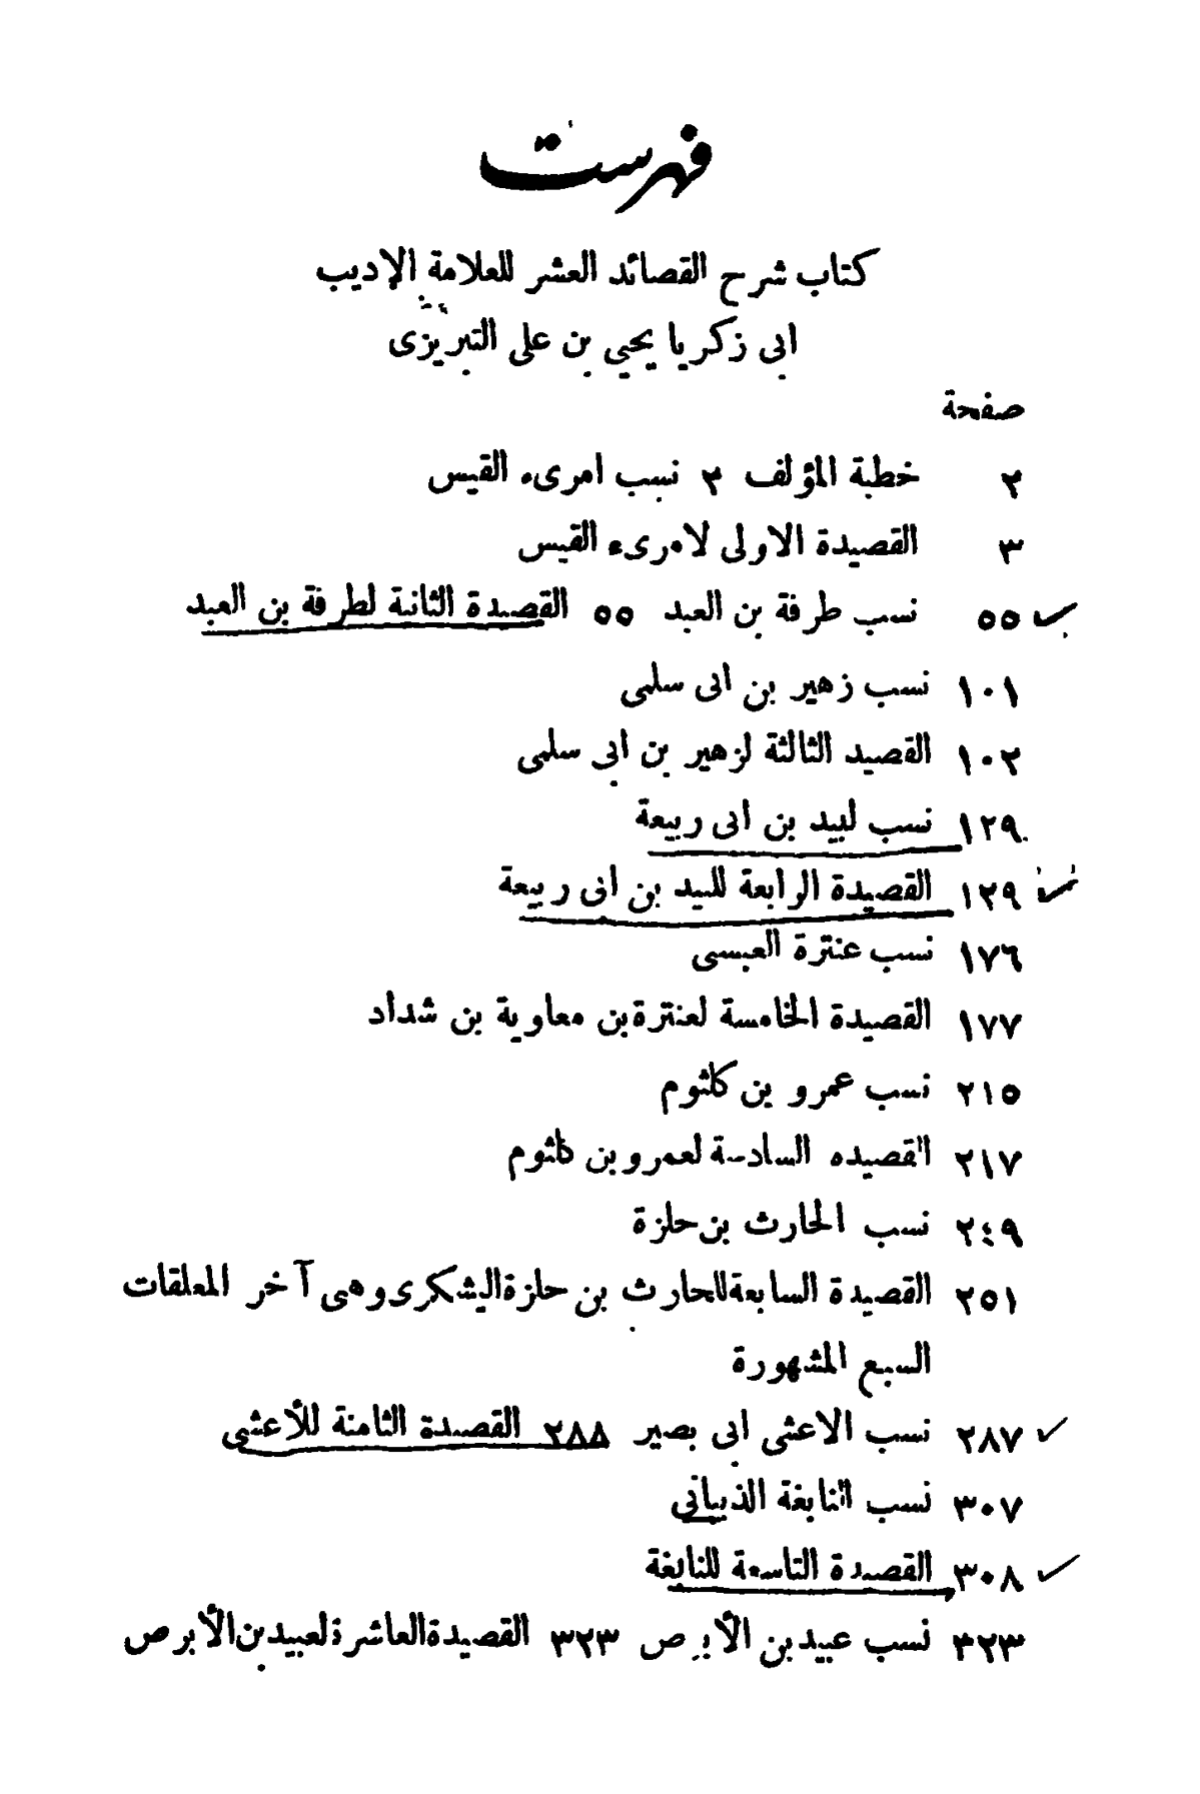 فهرست
كتاب شرح القصائد العشر للعلامة الإديب
ابى زكريا يحيى بن على التبريزى
صفحة
٢ خطبة المؤلف ٢ نسب امرىء القيس
٣ القصيدة الاولى لامرىء القيس
٥٥ نسب طرفة بن العبد ٥٥ القصيدة الثانة لطرفة بن العبد
١٠١ نسب زهير بن ابى سلمى
١٠٢ القصيد الثالثة لزهير بن ابى سلمى
١٢٩ نسب لبيد بن ابى ربيعة
١٢٩ القصيدة الرابعة للبيد بن ابى ربيعة
١٧٦ نسب عنترة العبسى
١٧٧ القصيدة الخامسة لعنترة بن معاوية بن شداد
٢١٥ نسب عمرو بن كلثوم
٢١٧ القصيده السادسة لعمرو بن كلثوم
٢٤٩ نسب الحارث بن حلزة
٢٥١ القصيدة السابعة للحارث بن حلزة اليشكرى وهى آخر المعلقات
السبع المشهورة
٢٨٧ نسب الاعشى ابى بصير ٢٨٨ القصيدة الثامنة للأعشى
٣٠٧ نسب النابغة الذبيانى
٣٠٨ القصيدة التاسعة للنابغة
٣٢٣ نسب عبيد بن الأبرص ٣٢٣ القصيدة العاشرة لعبيد بن الأبرص